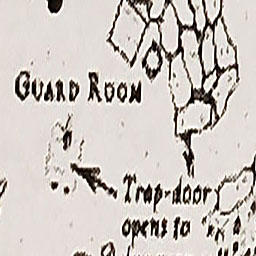 GUARD ROOM
Trap-door
opens to